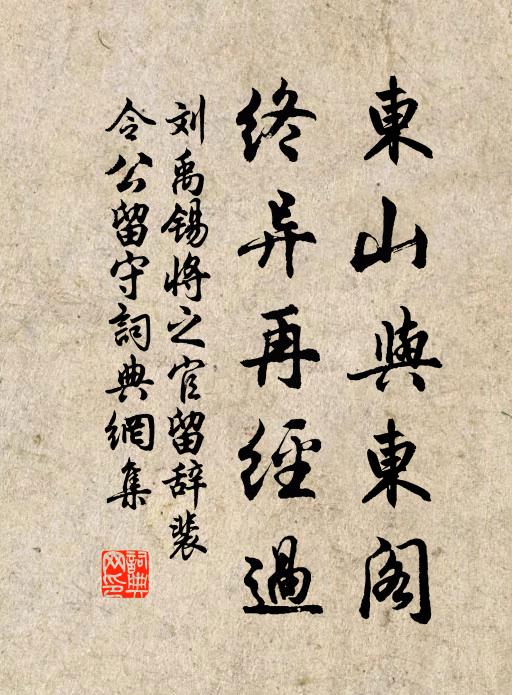 東山與東阁
终异再經過
刘禹锡将之官留辞裴
令公留守詞典網集
詞典
网印